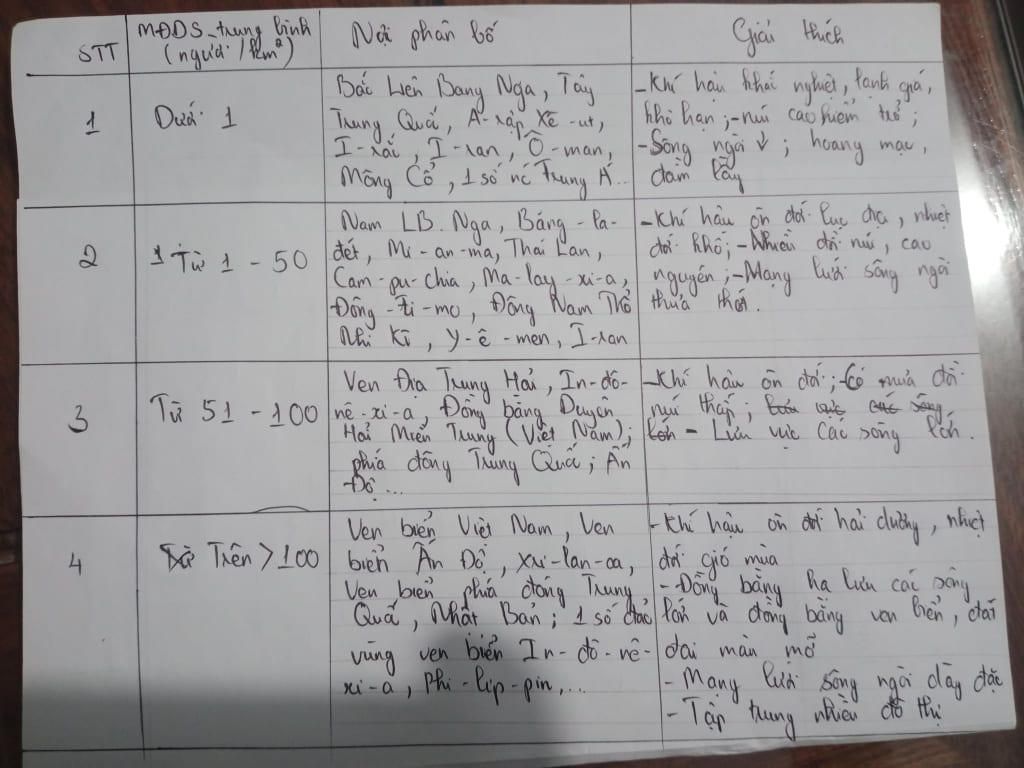 STT
MĐDS_trung bình
(người/km²)
Nơi phân bố
Giải thích
1
Dưới 1
Bắc Liên Bang Nga, Tây
Trung Quốc, A-rập Xê-ut,
I-rắc, I-ran, Ô-man,
Mông Cổ, 1 số nc Trung Á...
-Khí hậu khắc nghiệt, lạnh giá,
khô hạn;-núi cao hiểm trở;
-Sông ngòi ↓; hoang mạc,
đầm lầy
2
Từ 1 - 50
Nam LB. Nga, Băng-la-
đét, Mi-an-ma, Thái Lan,
Cam-pu-chia, Ma-lay-xi-a,
Đông-Ti-mo, Đông Nam Thổ
Nhì Kì, Y-ê-men, I-ran
-Khí hậu ôn đới lục địa, nhiệt
đới khô;-Nhiều đồi núi, cao
nguyên;-Mạng lưới sông ngòi
thưa thớt.
3
Từ 51 - 100
Ven Địa Trung Hải, In-đô-
nê-xi-a, Đồng bằng Duyên
Hải Miền Trung (Việt Nam);
phía đông Trung Quốc; Ấn
Độ...
-Khí hậu ôn đới;-Có mưa đồi
núi thấp; lưu vực các sông
lớn - Lưu vực các sông lớn.
4
Trên >100
Ven biển Việt Nam, Ven
biển Ấn Độ, Xri-lan-ca,
Ven biển phía đông Trung
Quốc, Nhật Bản; 1 số đảo
vùng ven biển In-đô-nê-
xi-a, Phi-lip-pin,...
-Khí hậu ôn đới hải dương, nhiệt
đới gió mùa
-Đồng bằng hạ lưu các sông
lớn và đồng bằng ven biển, đất
đai màu mỡ
-Mạng lưới sông ngòi dày đặc
-Tập trung nhiều đô thị